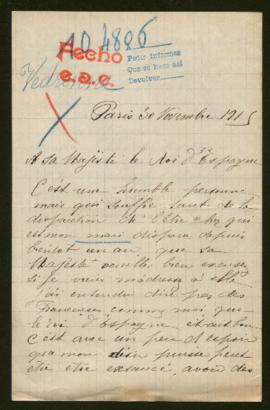 10.4886
Hecho
e.a.e.
Pedir informes
Que se hace así
Devolver
Paris 30 Novembre 1915
A sa Majesté le Roi d'Espagne
C'est une humble personne
mais qui souffre tant de la
disparition de l'être cher qui
est mon mari disparu depuis
bientot un an, que sa
Majesté veuille bien excuser
si je viens m'adresser à elle
j'ai entendu dire par des
Françaises comme moi que
le roi d'Espagne
C'est avec un peu d'espoir
que mon désir puisse peut
être être exaucé, avoir des